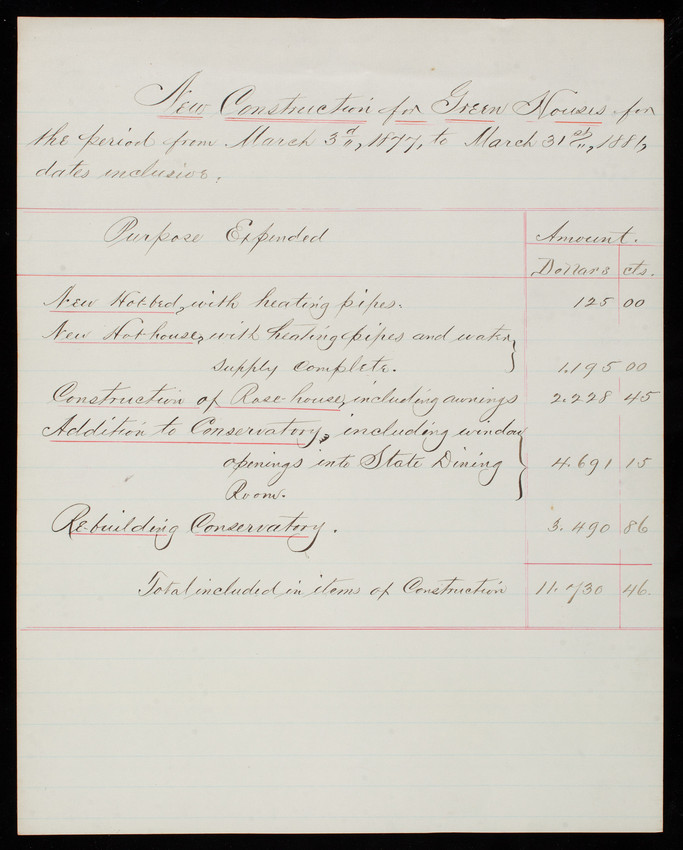 New Construction for Green Houses for
the period from March 3d, 1877, to March 31st, 1881,
dates inclusive.
Purpose Expended Amount.
Dollars cts.
New Hot-bed, with heating pipes. 125 00
New Hot-house, with heating pipes and water
supply complete. 1.195 00
Construction of Rose-house, including awnings 2.228 45
Addition to Conservatory, including window
openings into State Dining 4.691 15
Room.
Re-building Conservatory. 3.490 86
Total included in items of Construction 11.730 46.